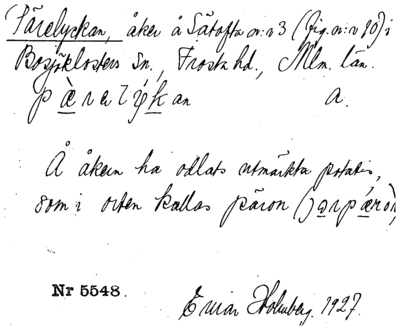 Pärelyckan, åker å Sätofta nr 3 (fig. nr 80) i
Bosjöklosters Sn., Frosta hd., Mlm. län.
a.
Å åkern ha odlats utmärkta potatis,
som i orten kallas päron
Nr 5548.
Einar Holmberg. 1927.